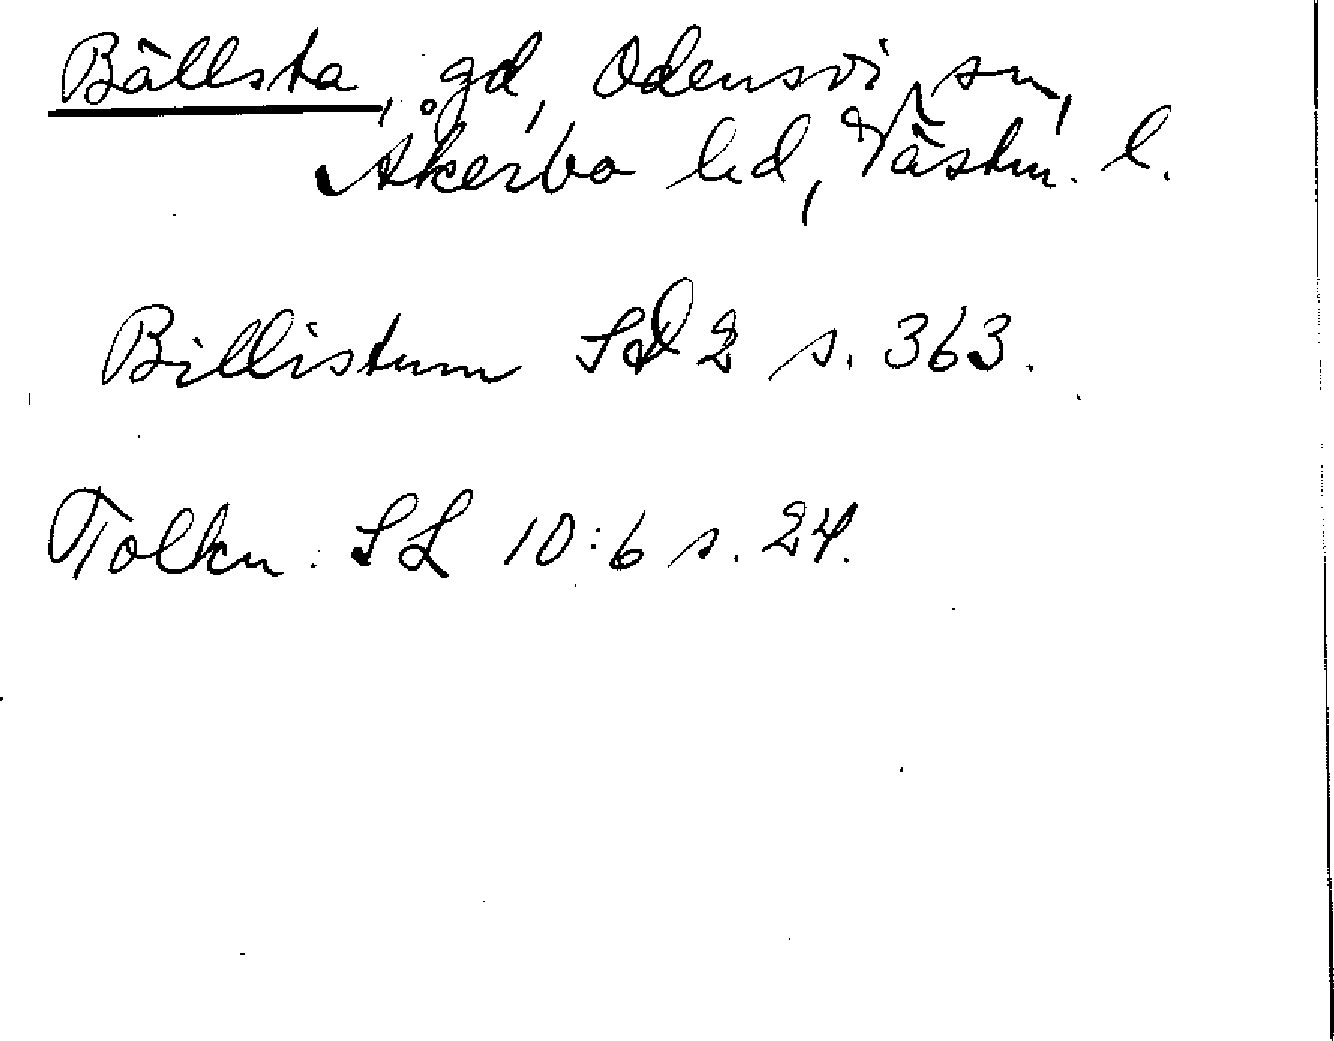 Bällsta, gd, Odensvi sn,
Åkerbo hd, Västm. l.
Billistum SD 2 s. 363.
Tolkn: SL 10:6 s. 24.